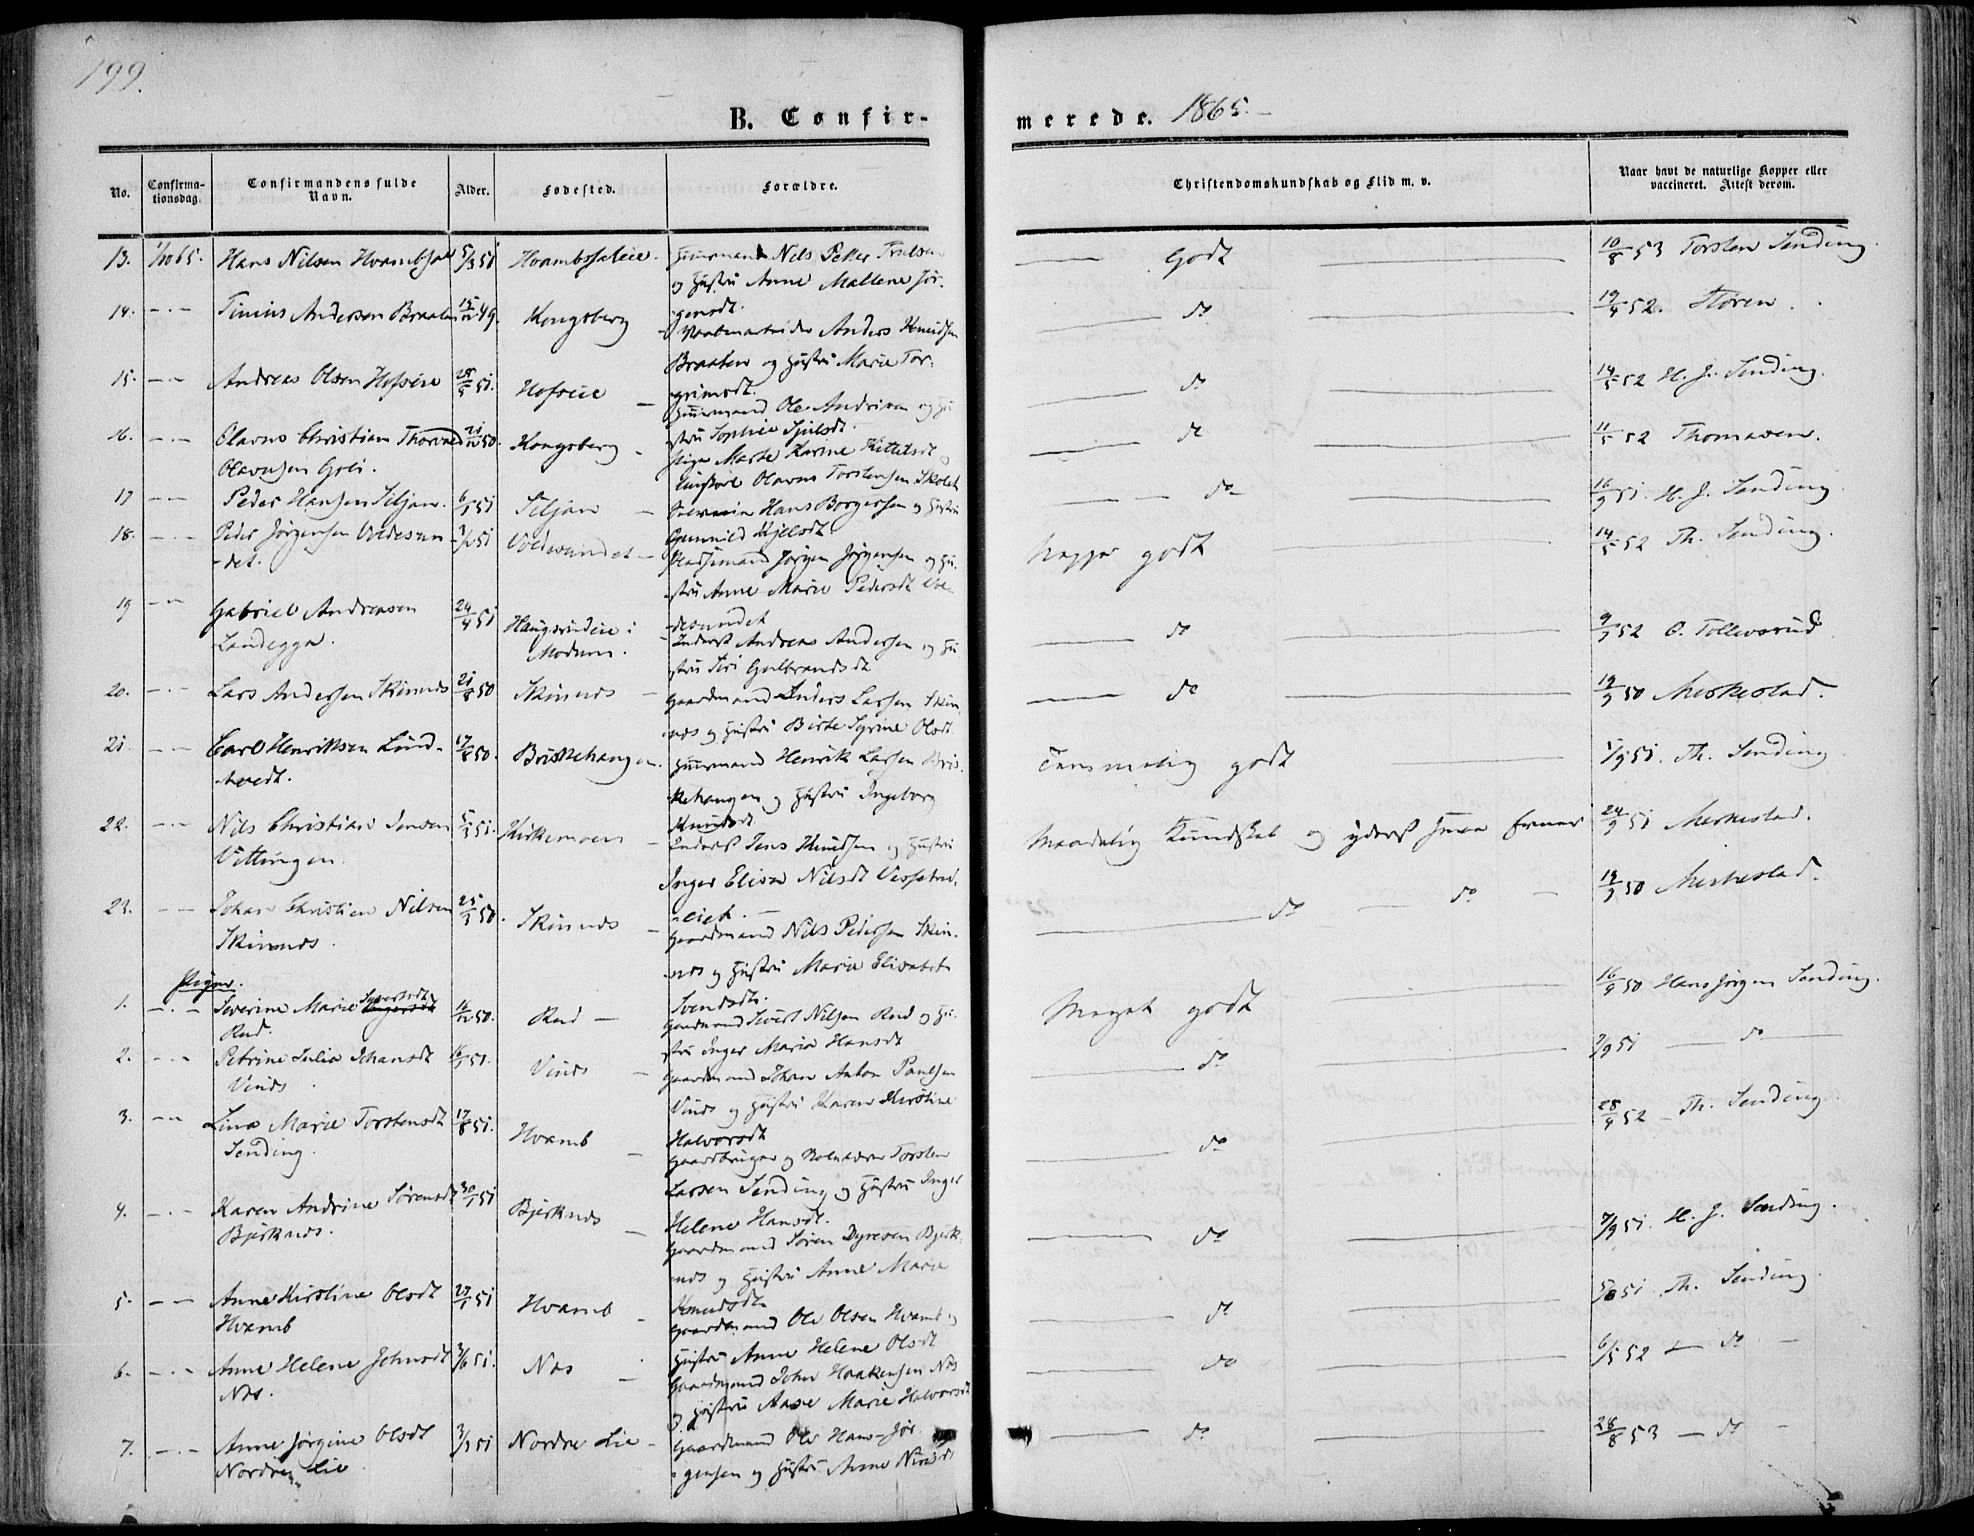 199.
B. Confir-
merede. 1865.
No.
Confirma-
tionsdag.
Confirmandens fulde
Navn.
Alder.
Fødested.
Forældre.
Christendomskundskab og Flid m. v.
Naar havt de naturlige Kopper eller
vaccineret. Attest derom.
13. 1/10 65. Hans Nilsen 5/3 51 Nils Petter
og Hustru Anne Mallene Jør-
Godt 10/8 53 Torsten Sending.
14. Tinius Andersen Braaten 15/12 49. Kongsberg
gensdt.
Anders Knudsen
Braaten og Hustru Marie Tor-
do 19/4 52. Støren.
15. Andreas Olsen Hofseie 51. Hofseie
grimsdt.
Huusmand Ole og Hu-
do 14/5 52 H. J. Sending.
16. Olavus Christian Thorvald 21/12 50. Kongsberg
Olavusen
stru Sophie
Pige Marte Karine Kittelsdt
Olavus Torstensen
do 11/5 52 Thomasen.
17 Peder Hansen Teljan. 6/1 51 Teljan
Hans Borgersen og Hustru
Gunnild Kjelsdt
do 16/9 51. H. J. Sending
18. Peder Jørgensen Voldesun-
-det. 51 Voldesundet
Pladsmand Jørgen Jørgensen og Hu-
stru Anne Marie Pedersdt Vol-
-desundet
godt 14/5 52 Th. Sending.
19 Gabriel Andreasen
Landegga. 24/4 51 Haugsrudeie i
Modum.
Inderst Andreas Andersen og Hu-
stru Siri Gulbrandsdt
do 9/7 52 O. Tollevsrud
20. Lars Andersen Skinnes 21/8 50 Skinnes
Gaardmand Anders Larsen Skin-
nes og Hustru Birte Syrine Olsdt
do 19/9 50 Meskestad.
21. Carl Henriksen Lund-
tvedt. 50. Briskehaugen.
Huusmand Henrik Larsen Bris-
kehaugen og Hustru Ingeborg
Knudsdt
Temmelig godt 1/9 51. Th. Sending
22. Nils Christian Jensen 5/1 51. Kirkemoen
Vittingen.
Inderst Jens Knudsen og Hustru
Inger Elise Nilsdt
-eiet.
Maadelig Kundskab og yderst
24/9 51 Meskestad.
23. Johan Christian Nilsen 50. Skinnes
Skinnes.
Gaardmand Nils Pedersen Skin-
-nes og Hustru Maria Elisabet
Svendsdt.
do do 19/9 50 Meskestad.
Piger.
1. Severine Marie Syvertsdt
Rud. 16/12 50. Rud
Gaardmand Sivert Nilsen Rud og Hu-
stru Inger Maria Hansdt
Meget godt 16/9 50 Hans Jørgen Sending.
2. Petrine Julie Johansdt 16/1 51. Vinds
Vinds
Gaardmand Johan Anton Paulsen
Vinds og Hustru Karen Kirstine
Halvorsdt
do 7/9 51 do
3. Lina Marie Torstensdt 17/8 51. Hvamb
Sending.
Gaardbruger og Torsten
Larsen Sending og Hustru Inger
Helene Hansdt.
do 28/4 52 Th. Sending
4. Karen Andrine Sørensdt 30/1 51 Bjerknes
Bjerknes.
Gaardmand Søren Dyresen Bjerk-
nes og Hustru Anne Marie
Knudsdt
do 7/9 51. H. J. Sending.
5. Anne Kirstine Olsdt 51 Hvamb
Hvamb
Gaardmand Ole Olsen Hvamb og
Hustru Anne Helene Olsdt
do 51. Th. Sending.
6. Anne Helene Johnsdt 3/6 51. Næs
Næs.
Gaardmand John Haakensen Næs
og Hustru Aase Marie Halvorsdt
do 6/5 52 do
7. Anne Jørgine Olsdt 51 Nordre Lie
Nordre Lie
Gaardmand Ole Hans-Jør-
gensen og Hustru Anne
do 28/8 53 do